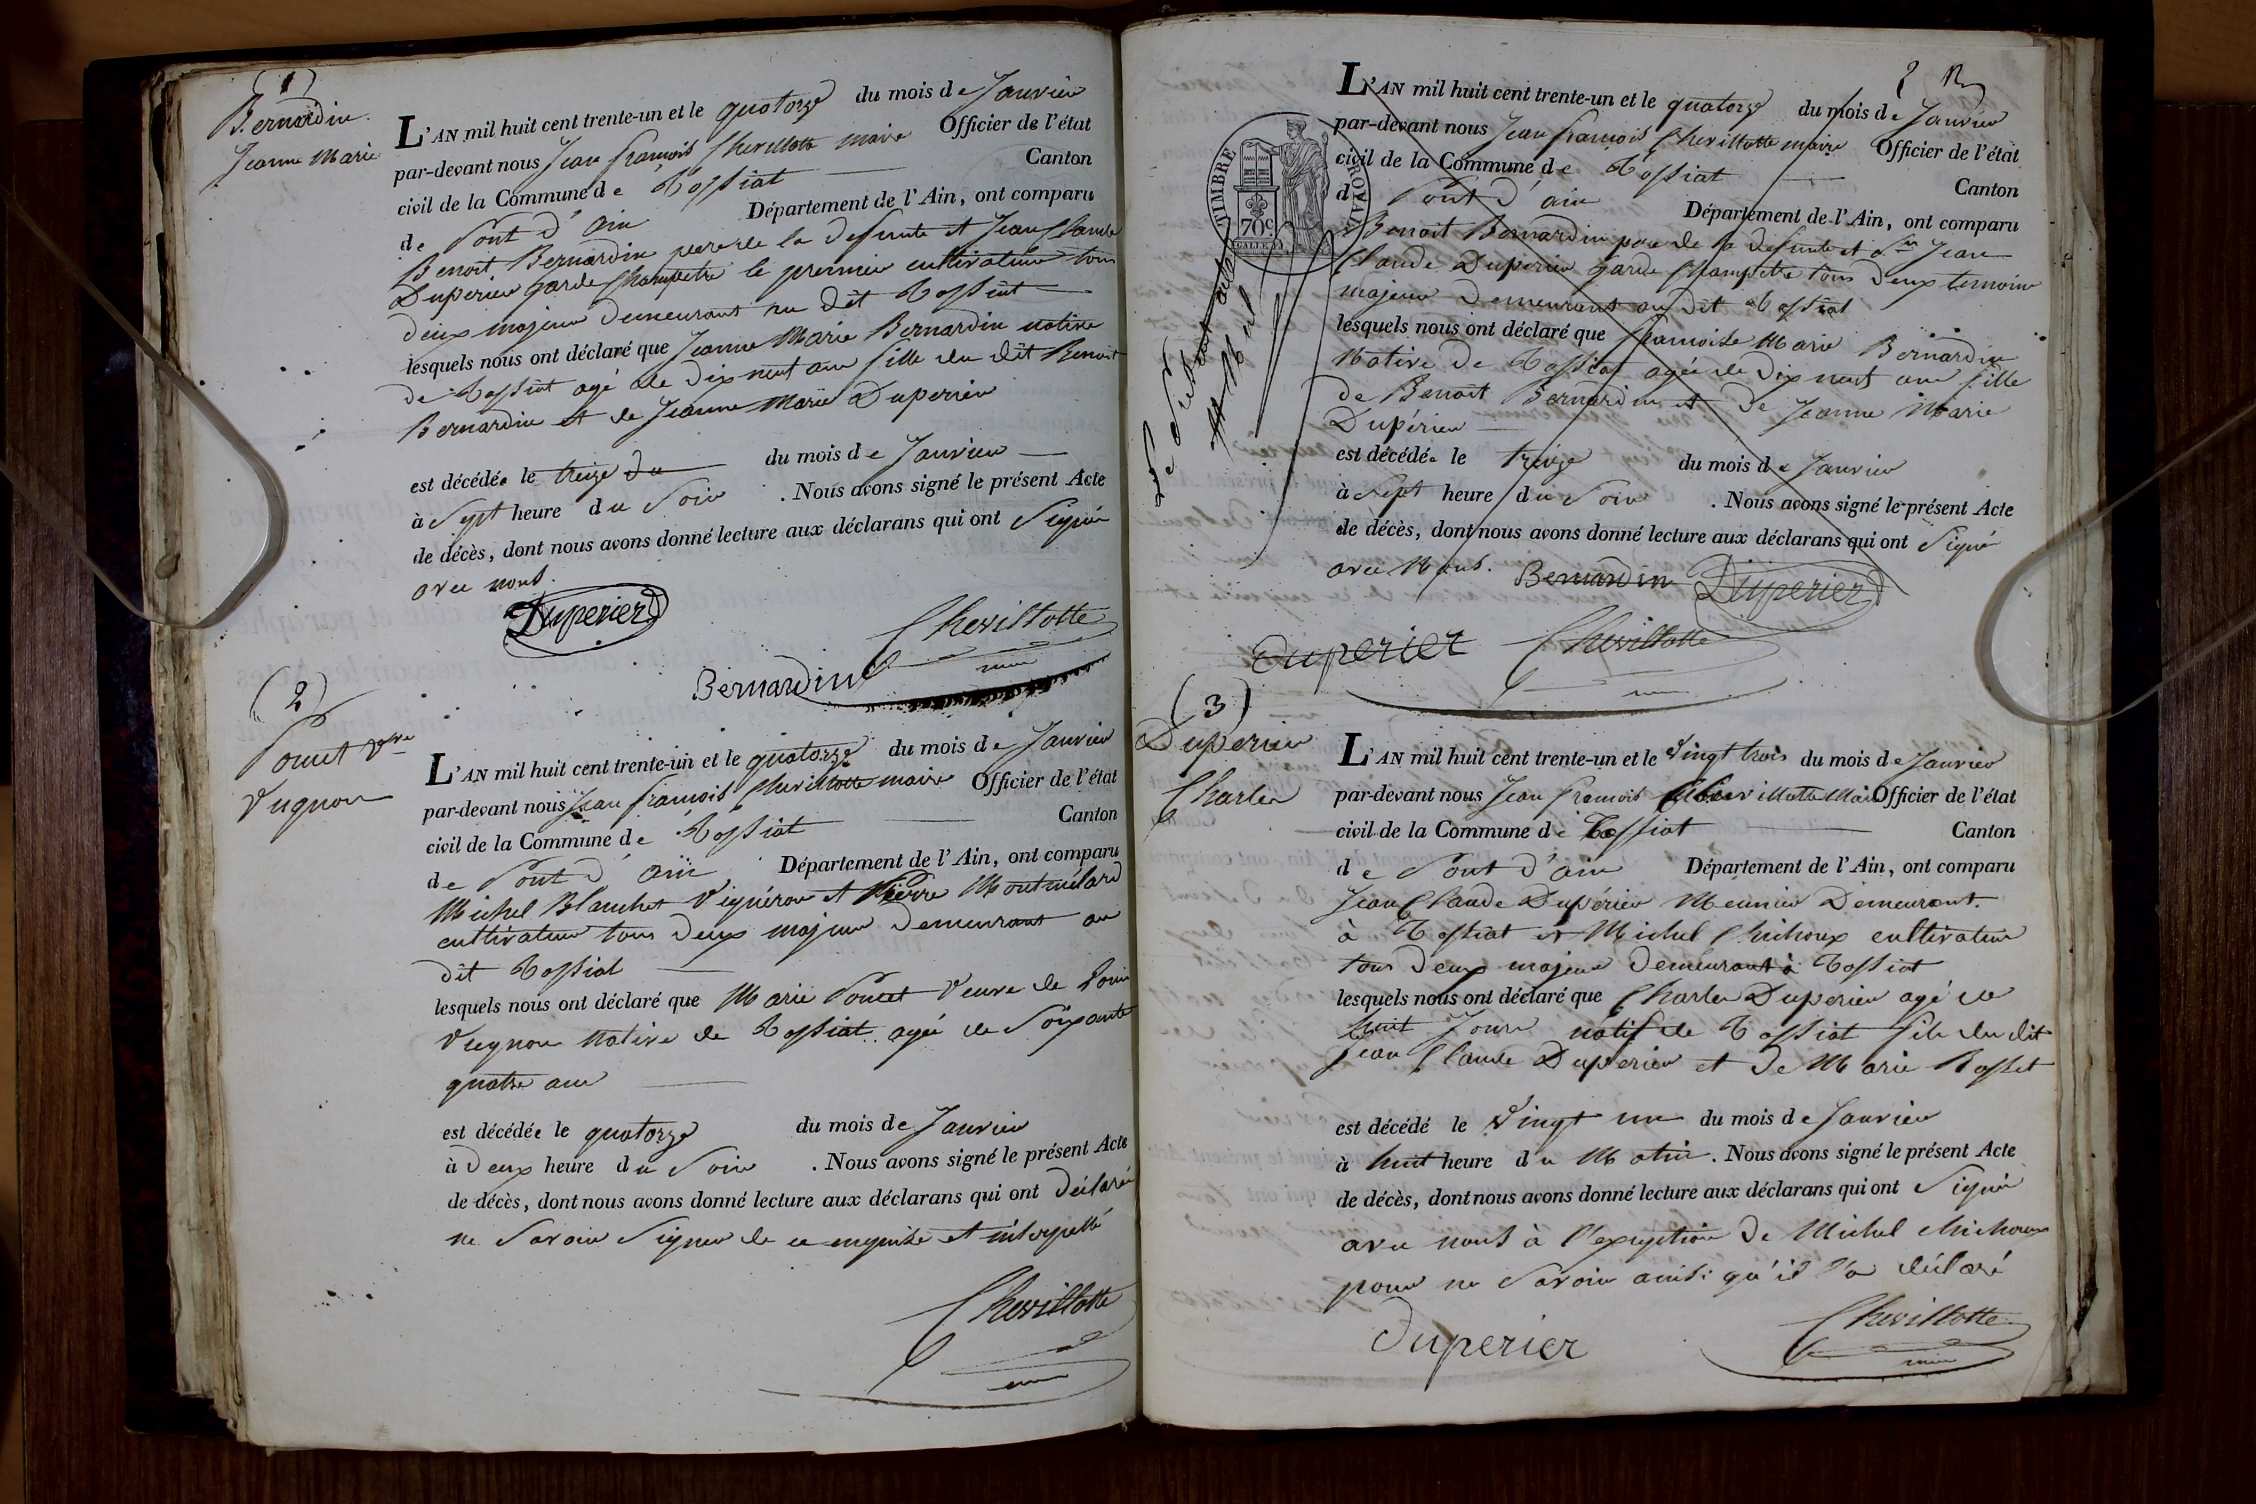 (1)
Bernardin
Jeanne Marie
L'AN mil huit cent trente-un et le quatorze du mois de Janvier
par-devant nous Jean françois Chevillotte maire Officier de l'état
civil de la Commune de Tossiat Canton
de Pont d'ain Département de l'Ain, ont comparu
Benoit Bernardin pere de la defunte et Jean Claude
Duperier garde Champetre le premier cultivateur tous
deux majeur demeurant au dit Tossiat
lesquels nous ont déclaré que Jeanne Marie Bernardin native
de Tossiat agé de dix neuf ans fille du dit Benoit
Bernardin et de Jeanne Marie Duperier
est décédée le treize du du mois de Janvier
à Sept heure du Soir . Nous avons signé le présent Acte
de décès, dont nous avons donné lecture aux déclarans qui ont Signé
avec nous.
Duperier
Chevillotte
Bernardin
(2)
Poncet vve
Vugnon
L'AN mil huit cent trente-un et le quatorze du mois de Janvier
par-devant nous Jean françois Chevillotte maire Officier de l'état
civil de la Commune de Tossiat Canton
de Pont d'ain Département de l'Ain, ont comparu
Michel Blanchet Vignéron et Pierre Montmélard
cultivateur tous deux majeur demeurant au
dit Tossiat
lesquels nous ont déclaré que Marie Poncet Veuve de Louis
Vugnon Native de Tossiat agée de Soixante
quatre ans
est décédée le quatorze du mois de Janvier
à deux heure du Soir . Nous avons signé le présent Acte
de décès, dont nous avons donné lecture aux déclarans qui ont déclaré
ne Savoir Signer de ce enquise et interpellé
Chevillotte
2
L'AN mil huit cent trente-un et le quatorze du mois de Janvier
par-devant nous Jean françois Chevillotte maire Officier de l'état
civil de la Commune de Tossiat Canton
d Pont d'ain Département de l'Ain, ont comparu
Benoit Bernardin pere de la defunte et Sr Jean
Claude Duperier garde Champetre tous deux temoins
majeur demeurant au dit Tossiat
lesquels nous ont déclaré que françoise Marie Bernardin
Native de Tossiat agée de dix neuf ans fille
de Benoit Bernardin et de Jeanne Marie
Dupérier
est décédée le treize du mois de Janvier
à Sept heure du Soir . Nous avons signé le présent Acte
de décès, dont nous avons donné lecture aux déclarans qui ont Signé
avec Nous. Bernardin Duperier
duperier Chevillotte
TIMBRE ROYAL
70c
Nul
(3)
Duperier
Charles
L'AN mil huit cent trente-un et le Vingt trois du mois de Janvier
par-devant nous Jean françois Chevillotte Maire Officier de l'état
civil de la Commune de Tossiat Canton
de Pont d'ain Département de l'Ain, ont comparu
Jean Claude Dupérier Meunier Demeurant
à Tossiat et Michel Chichoux cultivateur
tous deux majeur demeurant à Tossiat
lesquels nous ont déclaré que Charles Duperier agé de
huit Jours natif de Tossiat fils du dit
Jean Claude Duperier et de Marie Rosset
est décédé le Vingt un du mois de Janvier
à huit heure du Matin. Nous avons signé le présent Acte
de décès, dont nous avons donné lecture aux déclarans qui ont Signé
avec nous à l'exception de Michel Chichoux
pour ne Savoir ainsi qu'il l'a déclaré
duperier Chevillotte